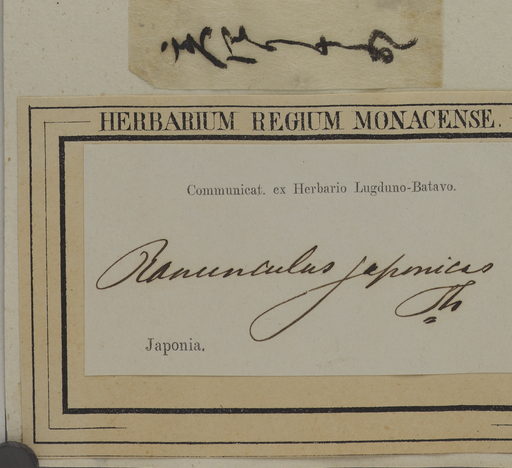 HERBARIUM REGIUM MONACENSE.
Communicat. ex Herbario Lugduno-Batavo.
Ranunculus japonicus
Th
Japonia.